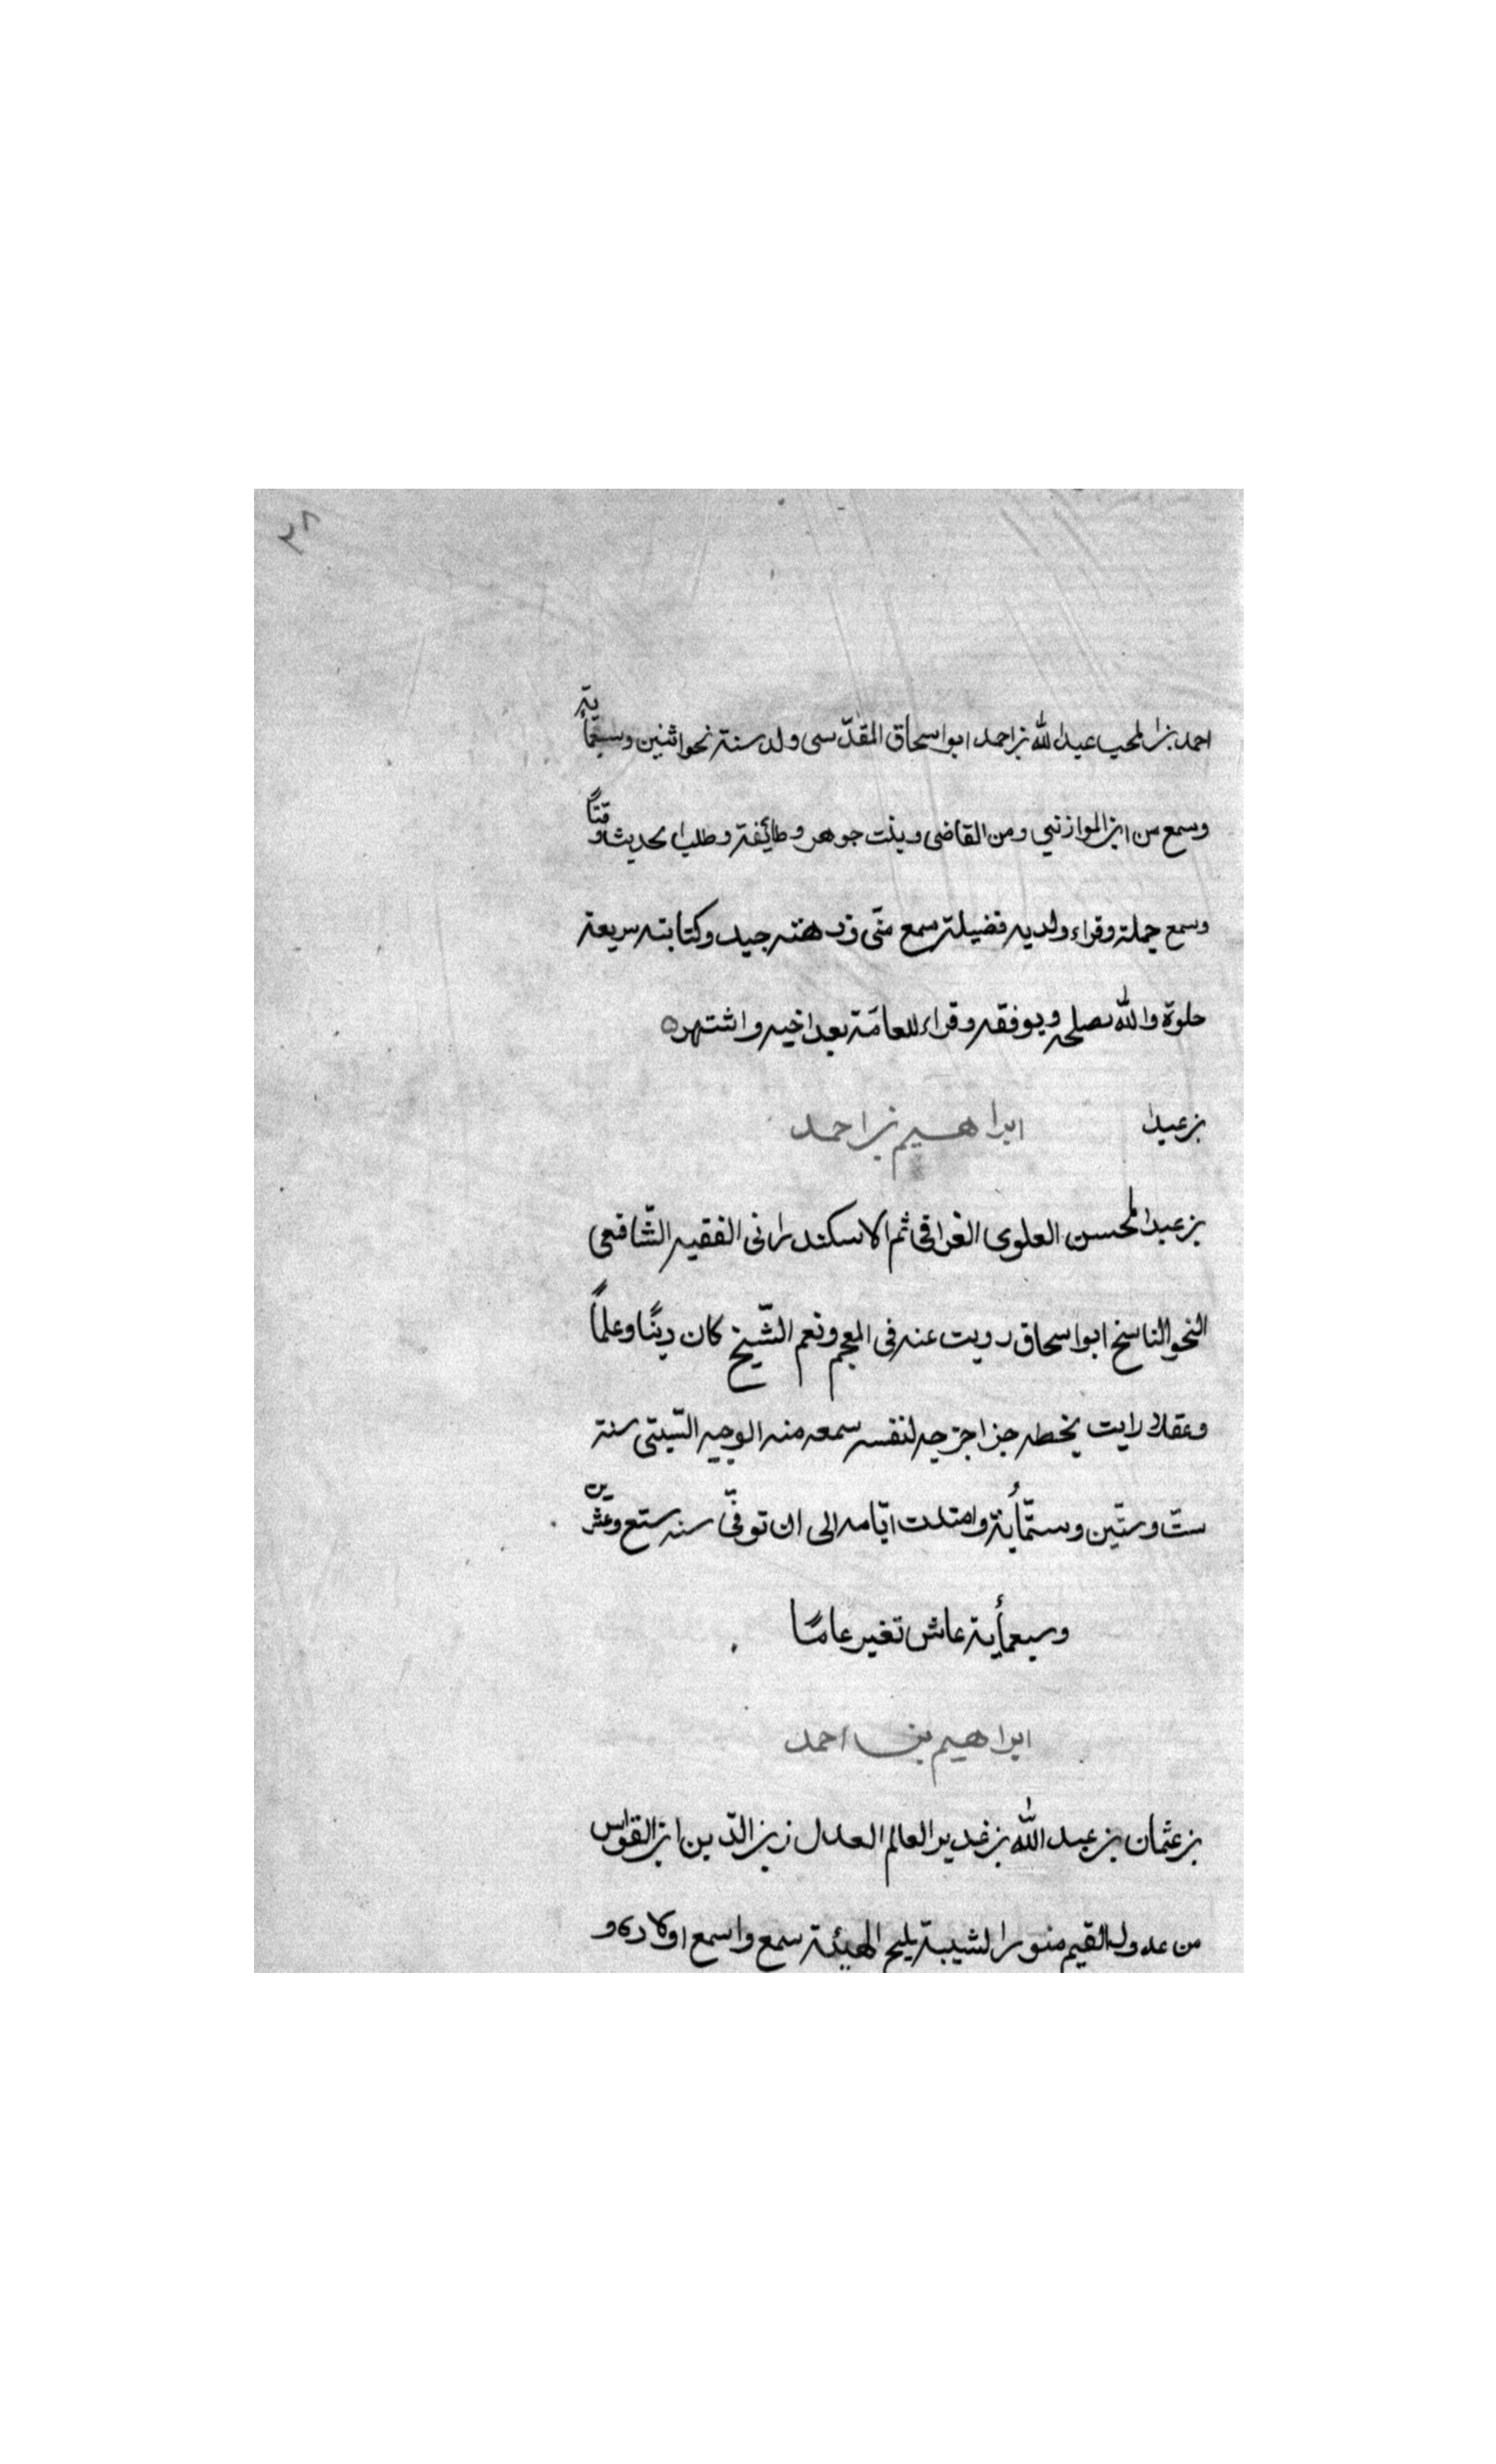 ٢٨
احمد بن المحب عبد الله بن احمد ابو اسحاق المقدّسى ولد سنة نحو اثنين وسبعمأية
وسمع من ابن الموازنيي ومن القاضى وبنت جوهر وطائفة وطلب الحديث وقتاً
وسمع جملة وقراء ولديه فضيلة سمع منّى وذهنه جيد وكتابته سريعة
حلوة والله يصلحه ويوفقه وقراء للعامّة بعد اخيه واشتهره
ابراهيم بن احمد بن عبدا
بن عبد المحسن العلوى الغرافى ثم الاسكندرانى الفقيه الشّافعى
النحو الناسخ ابو اسحاق رويت عنه فى المعجم ونعم الشّيخ كان ديّنًا وعلماً
وعقلا رايت بخطه جزا خرّجه لنفسه سمعه منه الوجيه السّبتى سنة
ستّ وستّين وستّمأية وامتدت ايّامه الى ان توفّى سنه ستع وعشرين
وسبعمأية عاش تغير عامًا
ابراهيم بن احمد
بن عثمان بن عبد الله بن غدير العالم العدل زين الدّين ابن القواس
من عدول القيم منور الشيبة يليح الهيئة سمع واسمع اولاده و